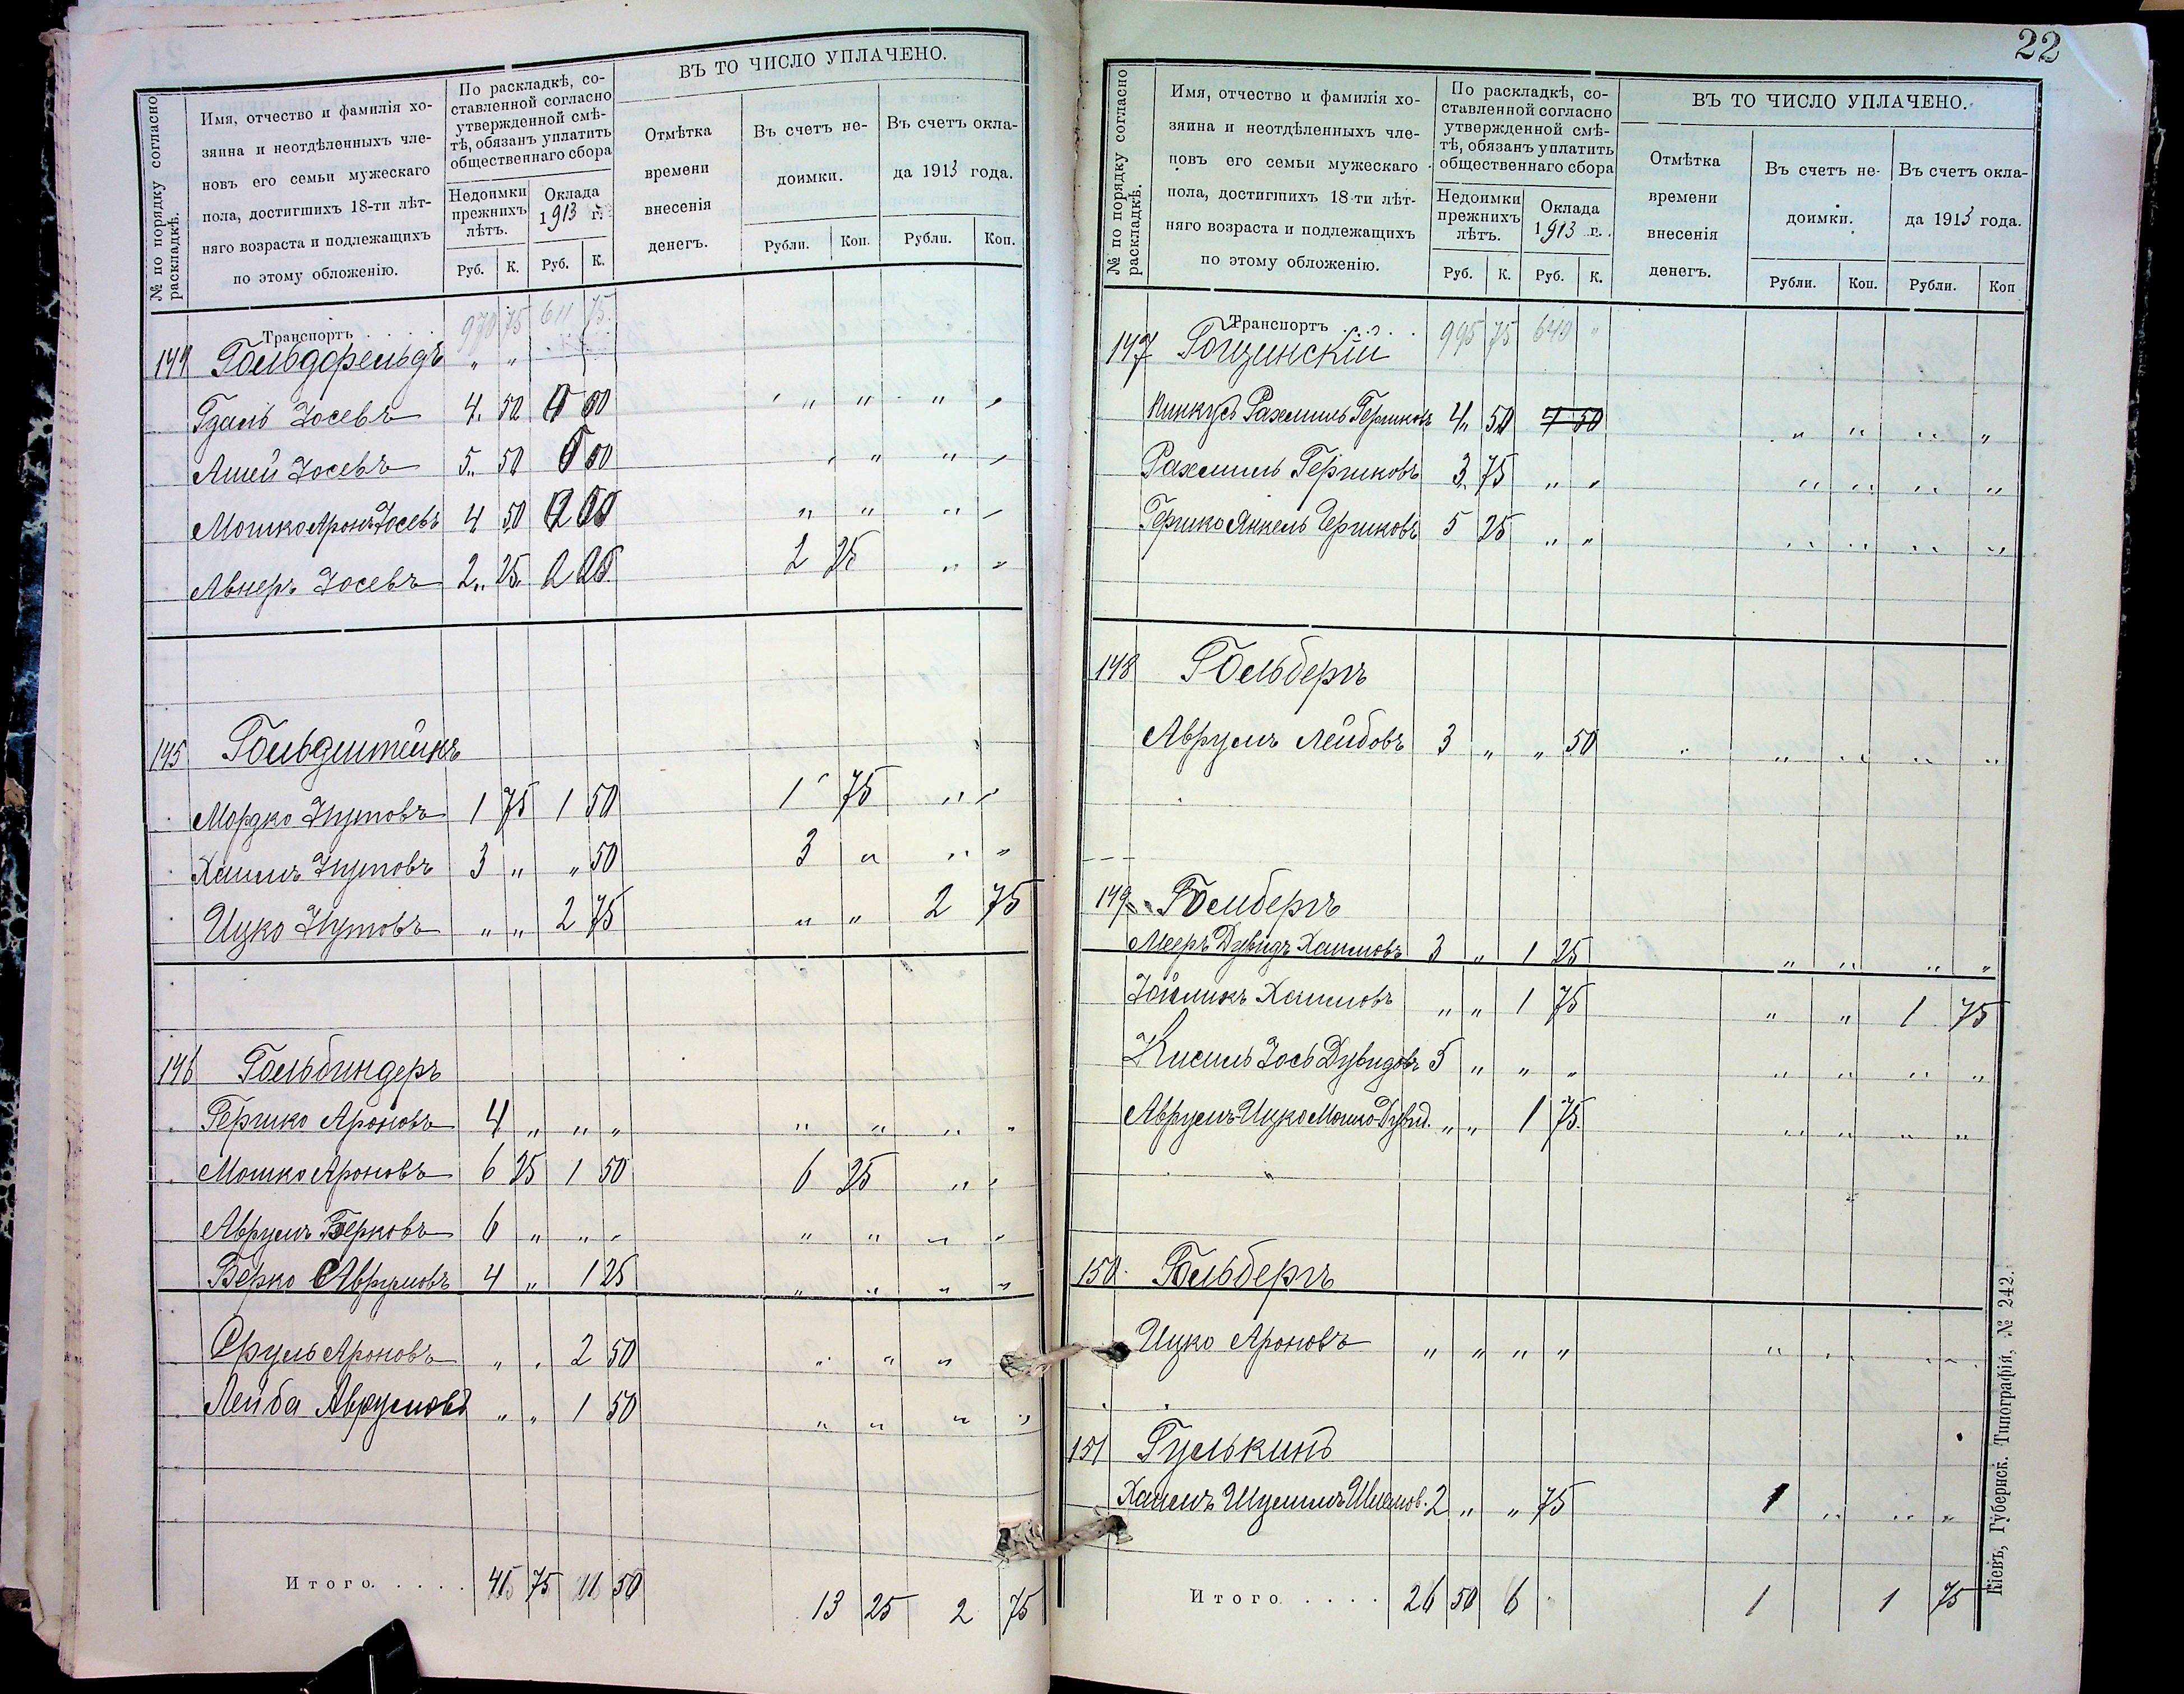 № по порядку согласно раскладкѣ.
Имя, отчество и фамилія хо-
зяина и неотдѣленныхъ чле-
новъ его семьи мужескаго
пола, достигшихъ 18-ти лѣт-
няго возраста и подлежащихъ
по этому обложенію.
По раскладкѣ, со-
ставленной согласно
утвержденной смѣ-
тѣ, обязанъ уплатить
общественнаго сбора
Недоимки прежнихъ лѣтъ.
Оклада 1913 г.
Руб. К. Руб. К.
ВЪ ТО ЧИСЛО УПЛАЧЕНО.
Отмѣтка
времени
внесенія
денегъ.
Въ счетъ не-
доимки.
Въ счетъ окла-
да 1913 года.
Рубли. Коп. Рубли. Коп.
Транспортъ . . . . 970 75 611 75
144 Гольдфельдъ „ „
Гдаль Іосевъ 4 50 „ „ „ „
Іосевъ 5 50 „ „ „ „
Мошко Аронъ Іосевъ 4 50 „ „ „ „
Авнеръ Іосевъ 2 25 2 25 „ „
145 Гольдштейнъ
Мордко Нутовъ 1 75 1 50 1 75 „ „
Хаимъ Нутовъ 3 „ „ 50 3 „ „ „
Ицко Нутовъ „ „ 2 75 „ „ 2 75
146 Гольбиндеръ
Гершко Ароновъ 4 „ „ „ „ „ „ „
Мошко Ароновъ 6 25 1 50 6 25 „ „
Аврумъ Берковъ 6 „ „ „ „ „ „ „
Берко Аврумовъ 4 „ 1 25 „ „ „ „
Сруль Ароновъ „ „ 2 50 „ „ „ „
Лейба Аврумовъ „ „ 1 50 „ „ „ „
Итого. . . . . 41 75 11 50 13 25 2 75
22
№ по порядку согласно раскладкѣ.
Имя, отчество и фамилія хо-
зяина и неотдѣленныхъ чле-
новъ его семьи мужескаго
пола, достигшихъ 18-ти лѣт-
няго возраста и подлежащихъ
по этому обложенію.
По раскладкѣ, со-
ставленной согласно
утвержденной смѣ-
тѣ, обязанъ уплатить
общественнаго сбора
Недоимки прежнихъ лѣтъ.
Оклада 1913 г.
Руб. К. Руб. К.
ВЪ ТО ЧИСЛО УПЛАЧЕНО.
Отмѣтка
времени
внесенія
денегъ.
Въ счетъ не-
доимки.
Въ счетъ окла-
да 1913 года.
Рубли. Коп. Рубли. Коп
Транспортъ . . . . 995 75 640 „
147 Гощинскій
Пинкусъ Рахмиль Гершковъ 4 50 „ „ „ „
Рахмиль Гершковъ 3 75 „ „ „ „ „ „
Гершко Янкель Гершковъ 5 25 „ „ „ „ „ „
148 Гольбергъ
Аврумъ Лейбовъ 3 „ „ 50 „ „ „ „
149 Гомбергъ
Мееръ Дувидъ Хаимовъ 3 „ 1 25 „ „ „ „
Хаимовъ „ „ 1 75 „ „ 1 75
Кисиль Іось Дувидовъ 5 „ „ „ „ „ „ „
Аврумъ-Ицко Мошко-Дувид. „ „ 1 75 „ „ „ „
150 Гольбергъ
Ицко Ароновъ „ „ „ „ „ „ „ „
151 Гулькинъ
Хаимъ 2 „ „ 75 1 „ „ „
Итого . . . . 26 50 6 1 1 75
Кіевъ, Губернск. Типографія, № 242.